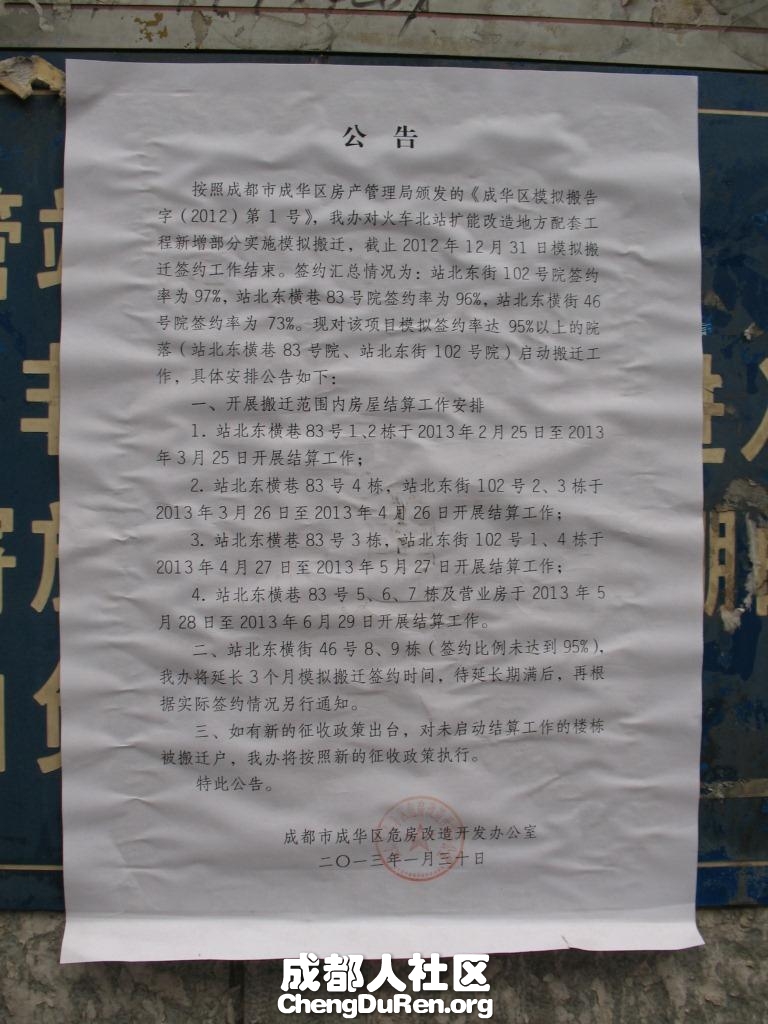 公 告
按照成都市成华区房产管理局颁发的《成华区模拟搬告
字(2012)第1号》，我办对火车北站扩能改造地方配套工
程新增部分实施模拟搬迁，截止2012年12月31日模拟搬
迁签约工作结束。签约汇总情况为：站北东街102号院签约
率为97%，站北东横巷83号院签约率为96%，站北东横街46
号院签约率为73%。现对该项目模拟签约率达95%以上的院
落（站北东横巷83号院、站北东街102号院）启动搬迁工
作，具体安排公告如下：
一、开展搬迁范围内房屋结算工作安排
1. 站北东横巷83号1、2栋于2013年2月25日至2013
年3月25日开展结算工作；
2. 站北东横巷83号4栋，站北东街102号2、3栋于
2013年3月26日至2013年4月26日开展结算工作；
3. 站北东横巷83号3栋，站北东街102号1、4栋于
2013年4月27日至2013年5月27日开展结算工作；
4. 站北东横巷83号5、6、7栋及营业房于2013年5
月28日至2013年6月29日开展结算工作。
二、站北东横街46号8、9栋（签约比例未达到95%），
我办将延长3个月模拟搬迁签约时间，待延长期满后，再根
据实际签约情况另行通知。
三、如有新的征收政策出台，对未启动结算工作的楼栋
被搬迁户，我办将按照新的征收政策执行。
特此公告。
成都市成华区危房改造开发办公室
二〇一三年一月三十日
成都人社区
ChengDuRen.org